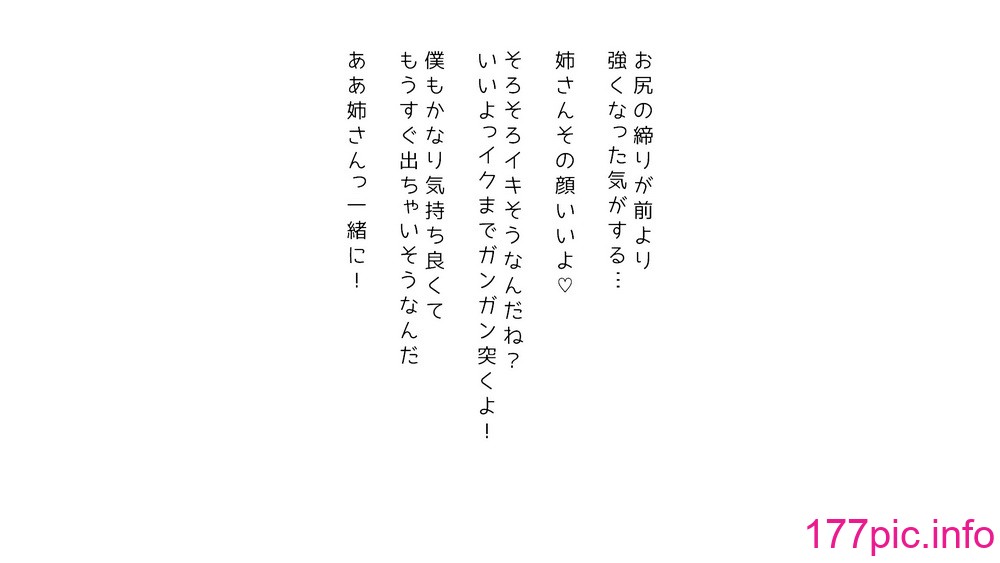 お尻の締りが前より
強くなった気がする…
姉さんその顔いいよ♡
そろそろイキそうなんだね？
いいよっイクまでガンガン突くよ！
僕もかなり気持ち良くて
もうすぐ出ちゃいそうなんだ
ああ姉さんっ一緒に！
177pic.info